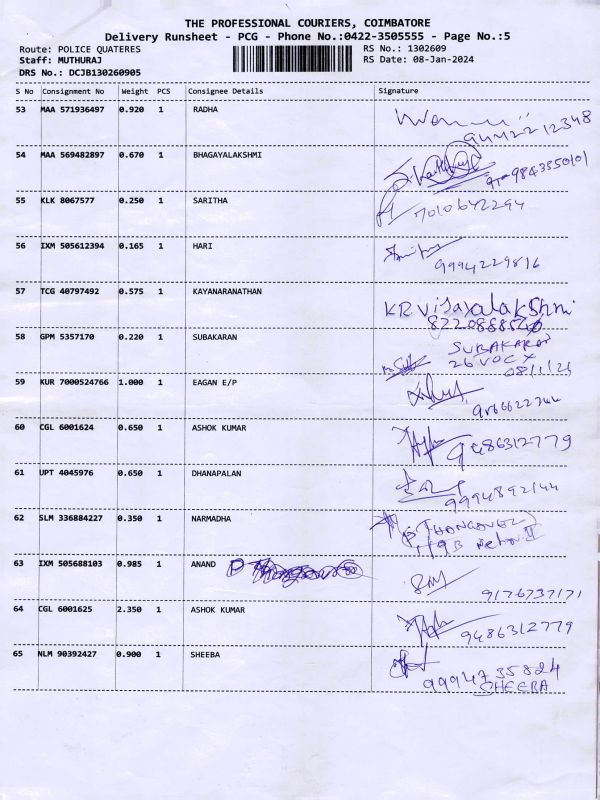 THE PROFESSIONAL COURIERS, COIMBATORE
Delivery Runsheet - PCG - Phone No.:0422-3505555 - Page No.:5
Route: POLICE QUATERES RS No.: 1302609
Staff: MUTHURAJ RS Date: 08-Jan-2024
DRS No.: DCJB130260905
S No Consignment No Weight PCS Consignee Details Signature
53 MAA 571936497 0.920 1 RADHA
9442212348
54 MAA 569482897 0.670 1 BHAGAYALAKSHMI
9843550101
55 KLK 8067577 0.250 1 SARITHA
7010642294
56 IXM 505612394 0.165 1 HARI
9994229816
57 TCG 40797492 0.575 1 KAYANARANATHAN
KR Vijayalakshmi
58 GPM 5357170 0.220 1 SUBAKARAN
SUBAKARAN
26 VOC
59 KUR 7000524766 1.000 1 EAGAN E/P
60 CGL 6001624 0.650 1 ASHOK KUMAR
9486312779
61 UPT 4045976 0.650 1 DHANAPALAN
9994892144
62 SLM 336884227 0.350 1 NARMADHA
THANGAVEL
63 IXM 505688103 0.985 1 ANAND
9176737171
64 CGL 6001625 2.350 1 ASHOK KUMAR
9486312779
65 NLM 90392427 0.900 1 SHEEBA
9994735824
SHEEBA